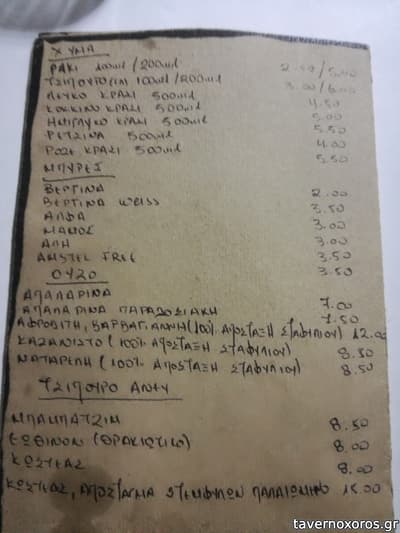 ΧΥΜΑ
ΡΑΚΙ 100ml/200ml 2.50/5.00
ΤΣΙΠΟΥΡΟ 100ml/200ml 3.00/6.00
ΛΕΥΚΟ ΚΡΑΣΙ 500ml 4.50
ΚΟΚΚΙΝΟ ΚΡΑΣΙ 500ml 5.00
ΗΜΙΓΛΥΚΟ ΚΡΑΣΙ 500ml 5.50
ΡΕΤΣΙΝΑ 500ml 4.00
ΡΟΖΕ ΚΡΑΣΙ 500ml 5.50
ΜΠΥΡΕΣ
ΒΕΡΓΙΝΑ 2.00
ΒΕΡΓΙΝΑ weiss 3.50
ΑΛΦΑ 3.00
ΜΑΜΟΣ 3.00
ΑΛΗ 3.50
AMSTEL FREE 3.50
ΟΥΖΟ
ΑΠΑΛΑΡΙΝΑ 7.00
ΑΠΑΛΑΡΙΝΑ ΠΑΡΑΔΟΣΙΑΚΗ 7.50
ΑΦΡΟΔΙΤΗ, ΒΑΡΒΑΓΙΑΝΝΗ (100% ΑΠΟΣΤΑΞΗ ΣΤΑΦΥΛΙΟΥ) 12.00
ΚΑΖΑΝΙΣΤΟ (100% ΑΠΟΣΤΑΞΗ ΣΤΑΦΥΛΙΟΥ) 8.50
(100% ΑΠΟΣΤΑΞΗ ΣΤΑΦΥΛΙΟΥ) 8.50
ΤΣΙΠΟΥΡΟ ΑΝΕΥ
ΜΠΑΜΠΑΤΖΙΜ 8.50
ΕΩΘΙΝΟΝ (ΘΡΑΚΙΩΤΙΚΟ) 8.00
ΚΩΣΤΕΑΣ 8.00
ΚΩΣΤΕΑΣ, ΑΠΟΣΤΑΓΜΑ ΣΤΕΜΦΥΛΩΝ ΠΑΛΑΙΩΜΕΝΟ 15.00
tavernoxoros.gr